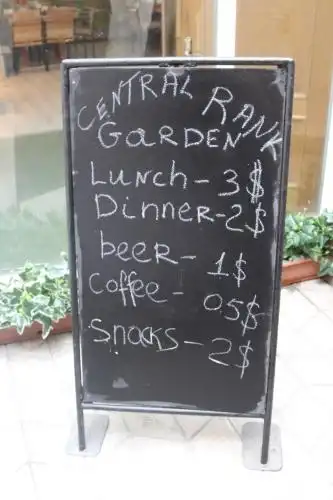 CENTRAL RANK
GARDEN
Lunch - 3$
Dinner - 2$
beer - 1$
Coffee - 0.5$
Snacks - 2$